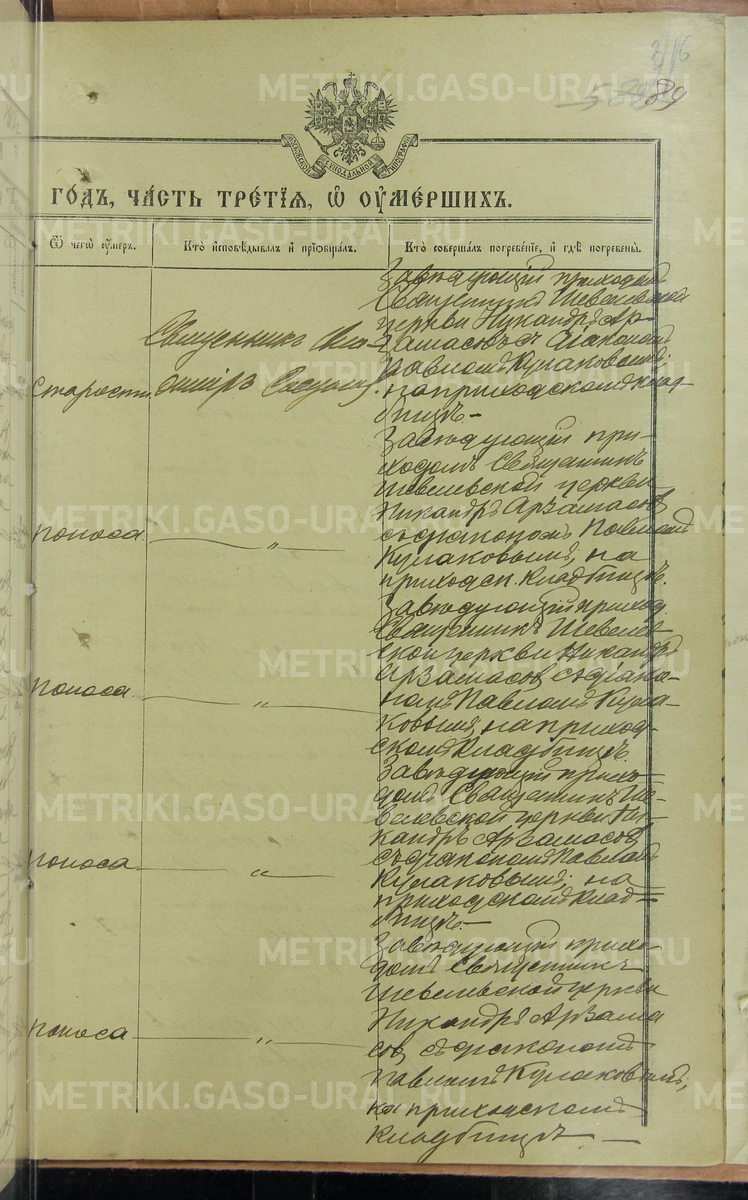 316
589
89
МОСКОВСКОЙ СѴНОДАЛЬНОЙ ТИПОГРАФІИ
ГО́ДЪ, ЧА́СТЬ ТРЕ́ТІѦ, Ѡ ОУМЕ́РШИХЪ.
Ѿ чегѡ оумеръ.
Кто исповѣдывалъ и прїобщалъ.
Кто совершалъ погребенїе, и гдѣ погребены.
Старости
Священникъ
Завѣдующій приходомъ
Священникъ Шевелевской
церкви Никандръ Ар-
замасовъ съ діакономъ
Павломъ Кулаковымъ,
на приходскомъ клад-
бищѣ.-
поноса
"
Завѣдующій при-
ходомъ Священникъ
Шевелевской церкви
Никандръ Арзамасовъ
съ діакономъ Павломъ
Кулаковымъ, на
приходск. кладбищѣ.
поноса
"
Завѣдующій приход.
Священникъ Шевелев-
ской церкви Никандръ
Арзамасовъ съ діако-
номъ Павломъ Кула-
ковымъ, на приход-
скомъ кладбищѣ.
поноса
"
Завѣдующій прихо-
домъ Священникъ Ше-
велевской церкви Ни-
кандръ Арзамасовъ
съ діакономъ Павломъ
Кулаковымъ, на
приходскомъ клад-
бищѣ.-
поноса
"
Завѣдующій прихо-
домъ Священникъ
Шевелевской церкви
Никандръ Арзама
совъ съ діакономъ
Павломъ Кулаковымъ,
на приходскомъ
кладбищѣ. —
METRIKI.GASO-URAL.RU